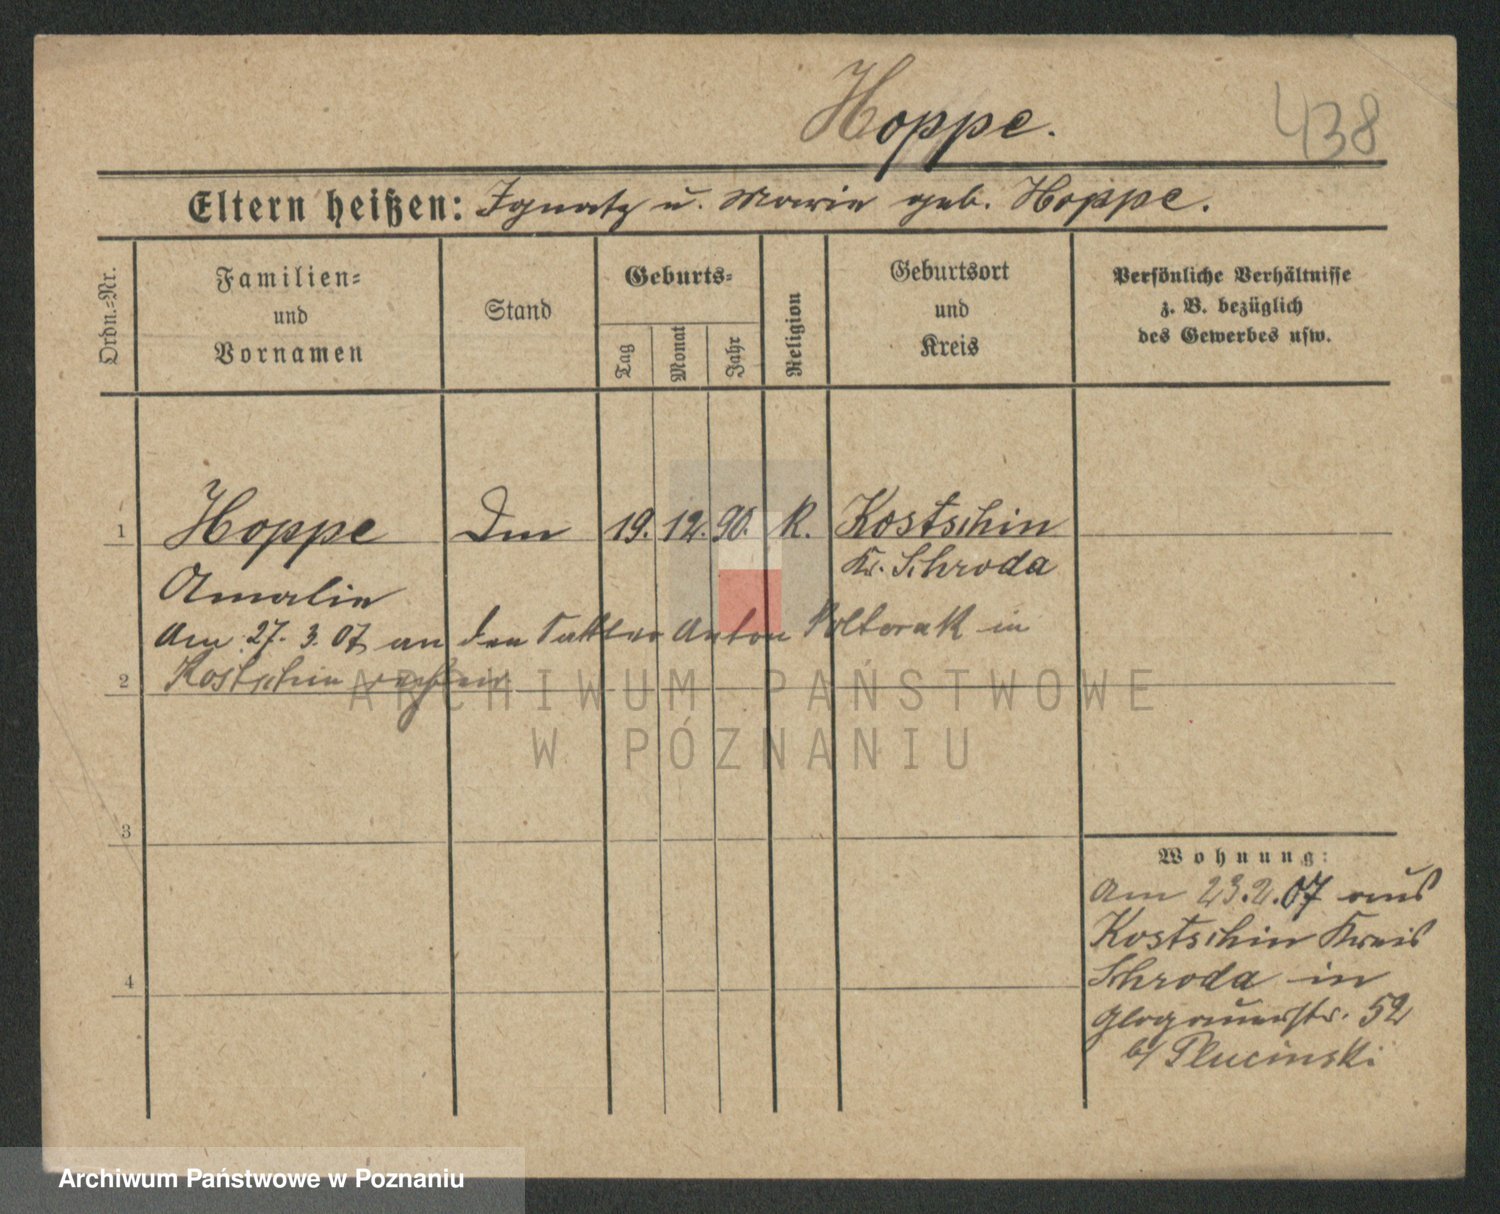 Hoppe. 438
Eltern heißen: Ignatz u. Marie geb. Hoppe.
Ordn.-Nr.
Familien-
und
Vornamen
Stand
Geburts-
Tag
Monat
Jahr
Religion
Geburtsort
und
Kreis
Persönliche Verhältnisse
z. B. bezüglich
des Gewerbes usw.
1 Hoppe 19. 12. 90. K. Kostschin
Kr. Schroda
Amalie
Am 27. 3. 07 an den Anton Poltorak in
2 Kostschin
ARCHIWUM PAŃSTWOWE
W POZNANIU
3
Wohnung:
Am 23.2.07 aus
Kostschin Kreis
Schroda in
4
Glogauerstr. 52
b/ Plucinski
Archiwum Państwowe w Poznaniu